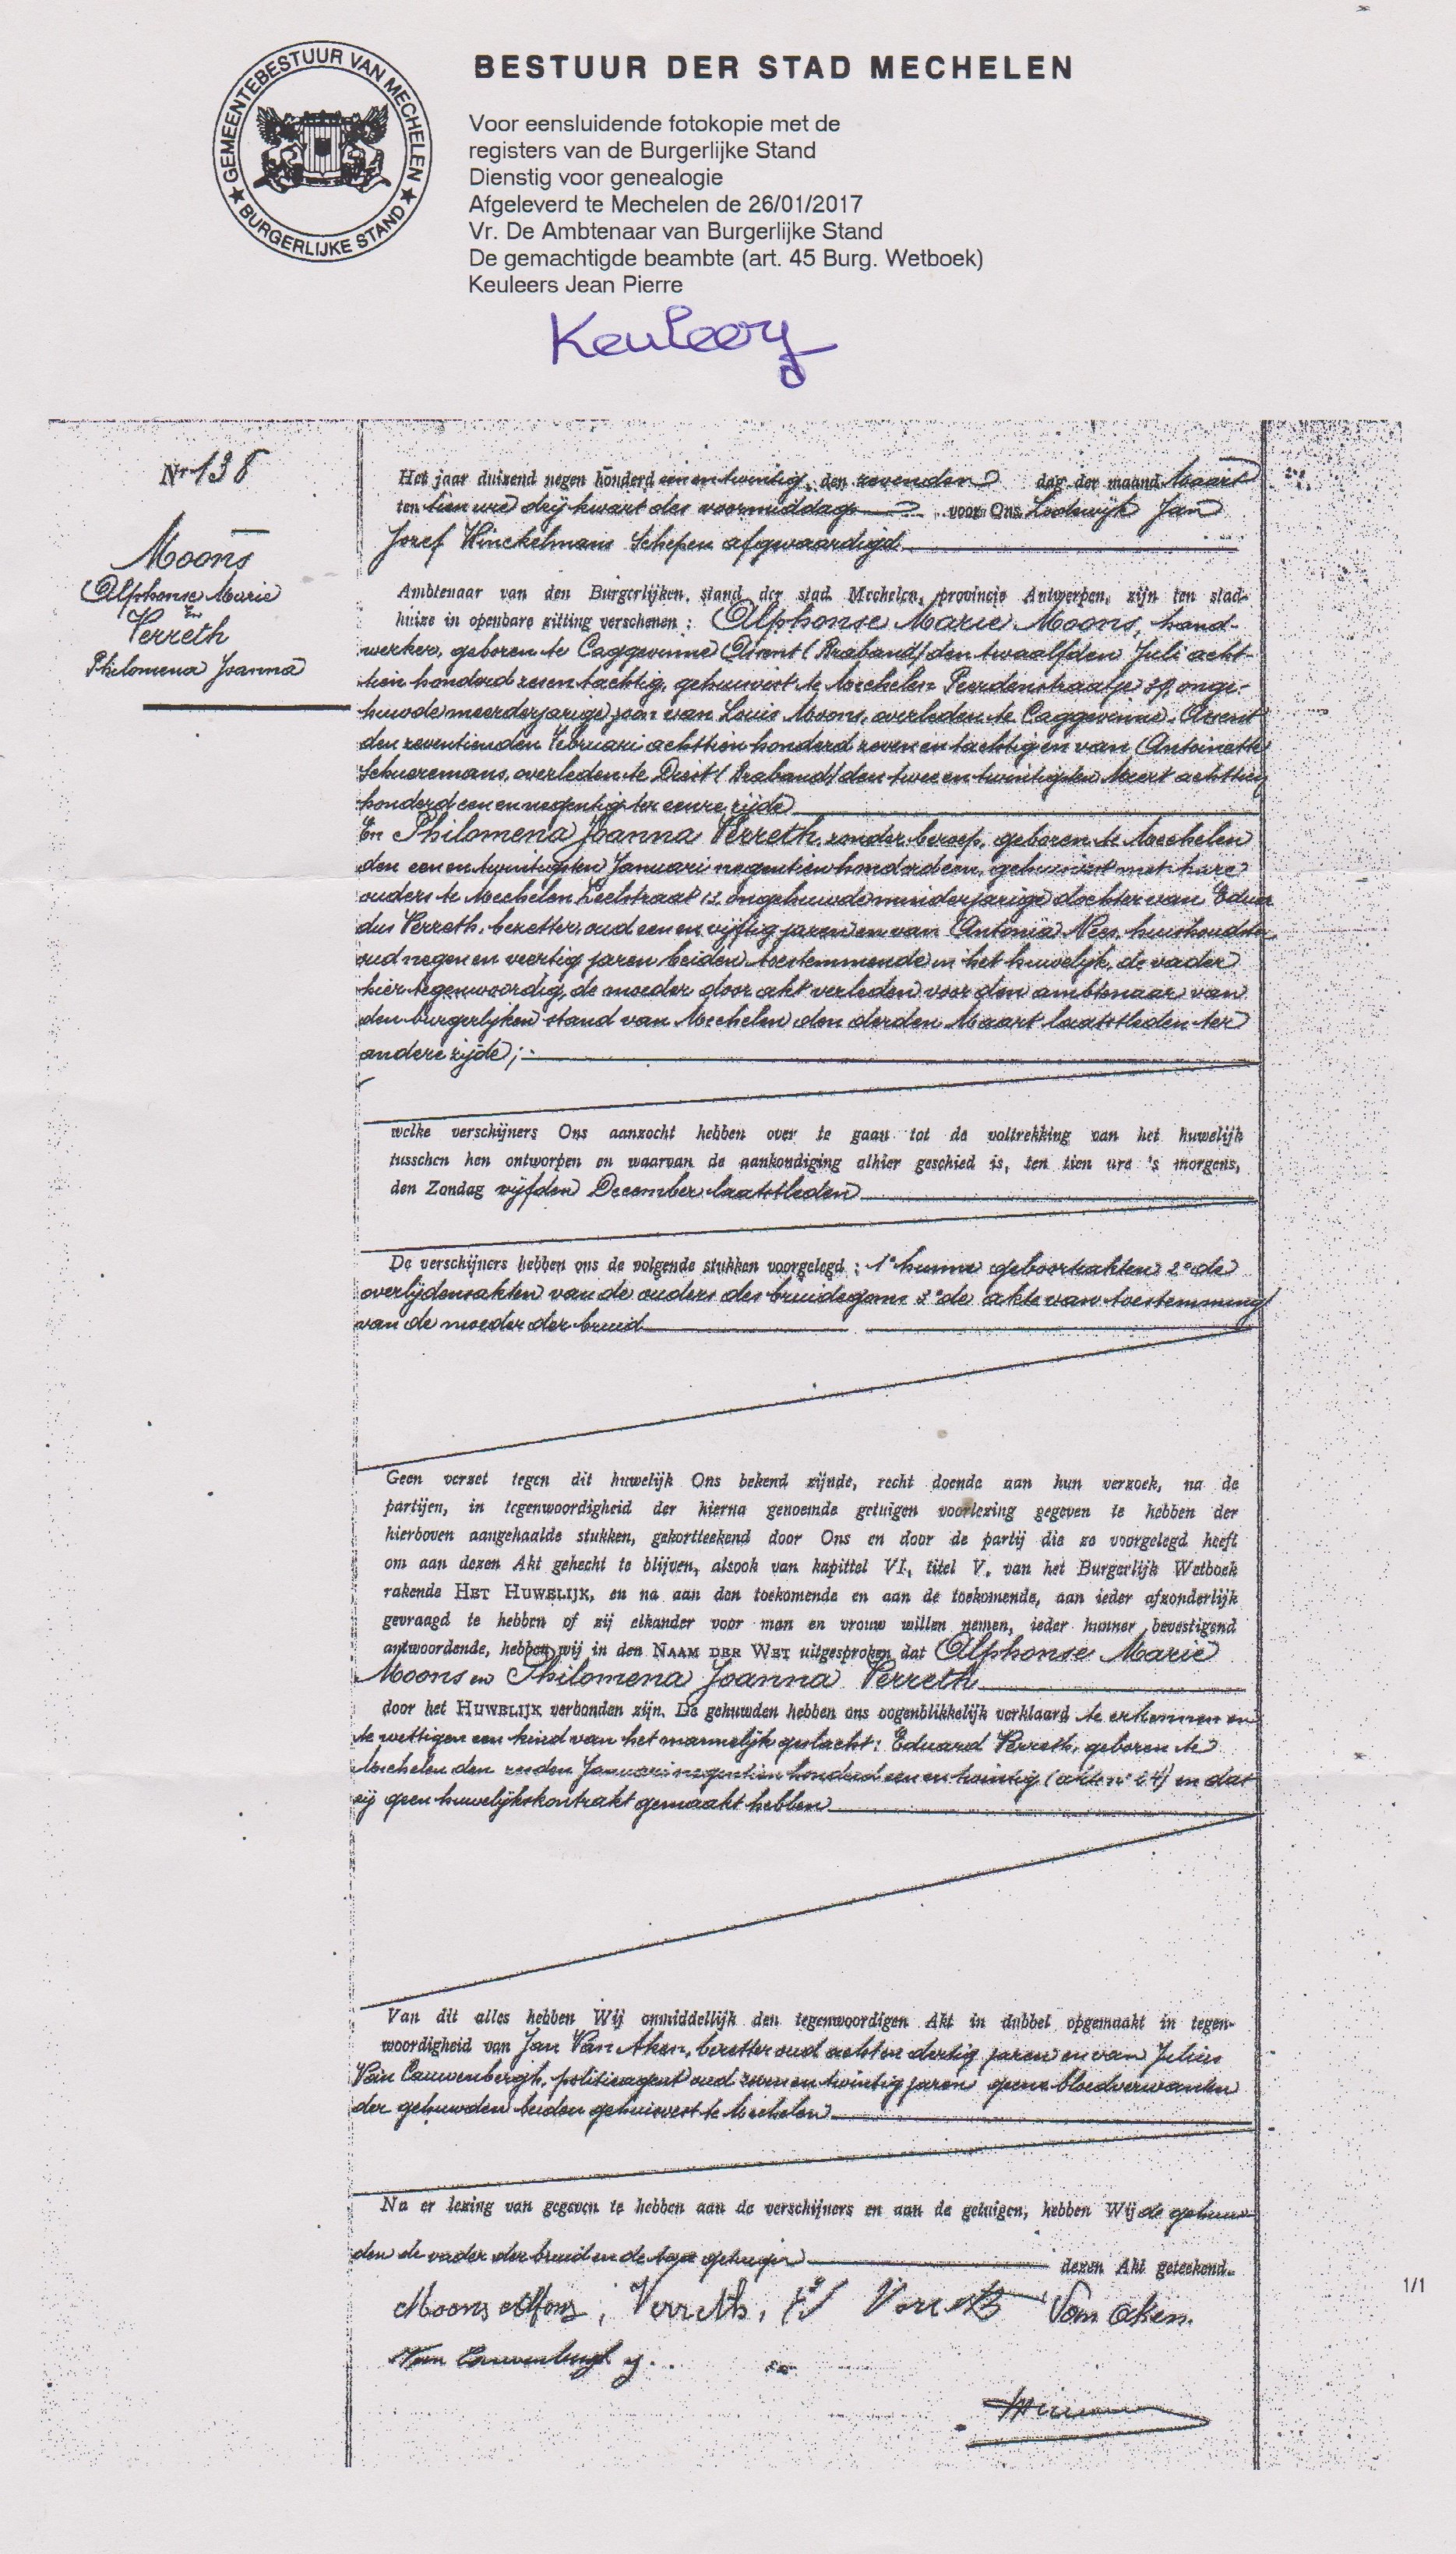 GEMEENTEBESTUUR VAN MECHELEN
★ BURGERLIJKE STAND ★
BESTUUR DER STAD MECHELEN
Voor eensluidende fotokopie met de
registers van de Burgerlijke Stand
Dienstig voor genealogie
Afgeleverd te Mechelen de 26/01/2017
Vr. De Ambtenaar van Burgerlijke Stand
De gemachtigde beambte (art. 45 Burg. Wetboek)
Keuleers Jean Pierre
Nr 138
Moons
Alphonse Marie
En
Verreth
Philomena Joanna
Het jaar duizend negen honderd een en twintig, den zevenden dag der maand Maart
ten tien ure drij kwart des voormiddags voor Ons Lodewijk Jan
Jozef Winckelmans Schepen afgevaardigd
Ambtenaar van den Burgerlijken stand der stad Mechelen, provincie Antwerpen, zijn ten stad-
huize in openbare zitting verschenen : Alphonse Marie Moons, hand-
werker, geboren te Caggevinne Assent (Braband) den twaalfden Juli acht-
tien honderd zes en tachtig, gehuisvest te Mechelen Peerdenstraatje, onge-
huwde meerderjarige zoon van Louis Moons, overleden te Caggevinne-Assent
den zeventienden Februari achttien honderd zeven en tachtig en van Antoinette
Schueremans, overleden te Diest (Braband) den twee en twintigsten Maert achttien
honderd een en negentig ter eenre zijde
En Philomena Joanna Verreth, zonder beroep, geboren te Mechelen
den een en twintigsten Januari negentien honderd een, gehuisvest met hare
ouders te Mechelen Leelstraat 12 ongehuwde minderjarige dochter van Eduar
dus Verreth, bezetter, oud een en vijftig jaren en van Antonia Nees, huishoudster,
oud negen en veertig jaren beiden toestemmende in het huwelijk, de vader
hier tegenwoordig, de moeder door akt verleden voor den ambtenaar van
den burgerlijken stand van Mechelen den derden Maart laatstleden ter
andere zijde;
welke verschijners Ons aanzocht hebben over te gaan tot de voltrekking van het huwelijk
tusschen hen ontworpen en waarvan de aankondiging alhier geschied is, ten tien ure 's morgens,
den Zondag vijfden December laatstleden
De verschijners hebben ons de volgende stukken voorgelegd : 1° hunne geboorteakten 2° de
overlijdensakten van de ouders des bruidegoms 3° de akte van toestemming
van de moeder der bruid
Geen verzet tegen dit huwelijk Ons bekend zijnde, recht doende aan hun verzoek, na de
partijen, in tegenwoordigheid der hierna genoemde getuigen voorlezing gegeven te hebben der
hierboven aangehaalde stukken, gekortteekend door Ons en door de partij die ze voorgelegd heeft
om aan dezen Akt gehecht te blijven, alsook van kapittel VI, titel V, van het Burgerlijk Wetboek
rakende HET HUWELIJK, en na aan den toekomende en aan de toekomende, aan ieder afzonderlijk
gevraagd te hebben of zij elkander voor man en vrouw willen nemen, ieder hunner bevestigend
antwoordende, hebben wij in den NAAM DER WET uitgesproken dat Alphonse Marie
Moons en Philomena Joanna Verreth
door het HUWELIJK verbonden zijn. De gehuwden hebben ons oogenblikkelijk verklaard te erkennen en
te wettigen een kind van het mannelijk geslacht: Eduard Verreth, geboren te
Mechelen den zesden Januari negentien honderd een en twintig (akte n° 24) en dat
zij geen huwelijkskontrakt gemaakt hebben
Van dit alles hebben Wij onmiddellijk den tegenwoordigen Akt in dubbel opgemaakt in tegen-
woordigheid van Jan Van Aken, bezetter oud acht en dertig jaren en van Julius
Van Cauwenbergh, politieagent oud zeven en twintig jaren geene bloedverwanten
der gehuwden beiden gehuisvest te Mechelen
Na er lezing van gegeven te hebben aan de verschijners en aan de getuigen, hebben Wij de gehuw-
den de vader der bruid en de getuigen dezen Akt geteekend.
Moons Alfons, Verreth, Verreth Van Aken.
Van Cauwenbergh J.
1/1